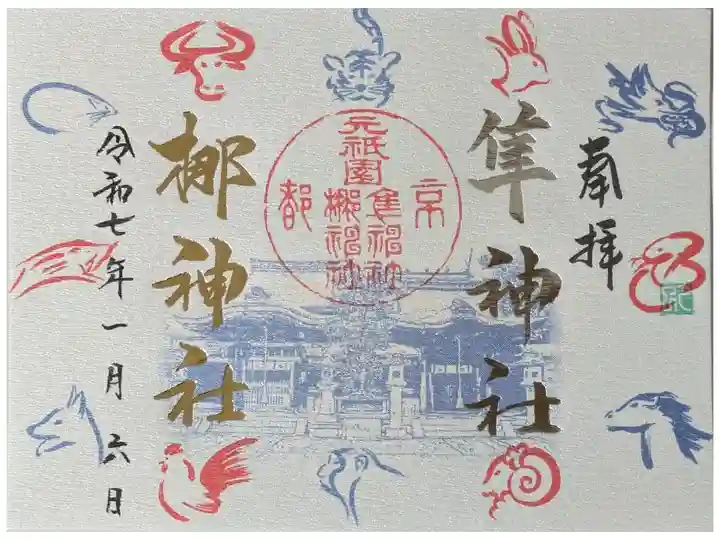 奉拝
隼神社
元祇園
隼神社
梛神社
京都
梛神社
令和七年一月六日